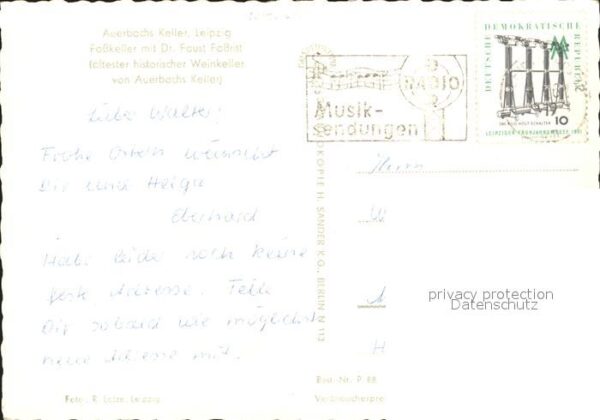 Auerbachs Keller, Leipzig
Faßkeller mit Dr. Faust Faßrist
(ältester historischer Weinkeller
von Auerbachs Keller)
Lieber Walter,
Frohe Ostern wünscht
Dir und Helga
Eberhard
Hab leider noch keine
feste Adresse. Teile
Dir sobald wie möglichst
neue Adresse mit.
Foto: R. Lotze, Leipzig
RADIO
Musik-
sendungen
DEUTSCHE DEMOKRATISCHE REPUBLIK
10
LEIPZIGER FRÜHJAHRSMESSE 1961
KOPIE H. SANDER K.G., BERLIN N 113
Herrn
W
A
H
privacy protection
Datenschutz
Best.-Nr. P 88
Verbraucherpre